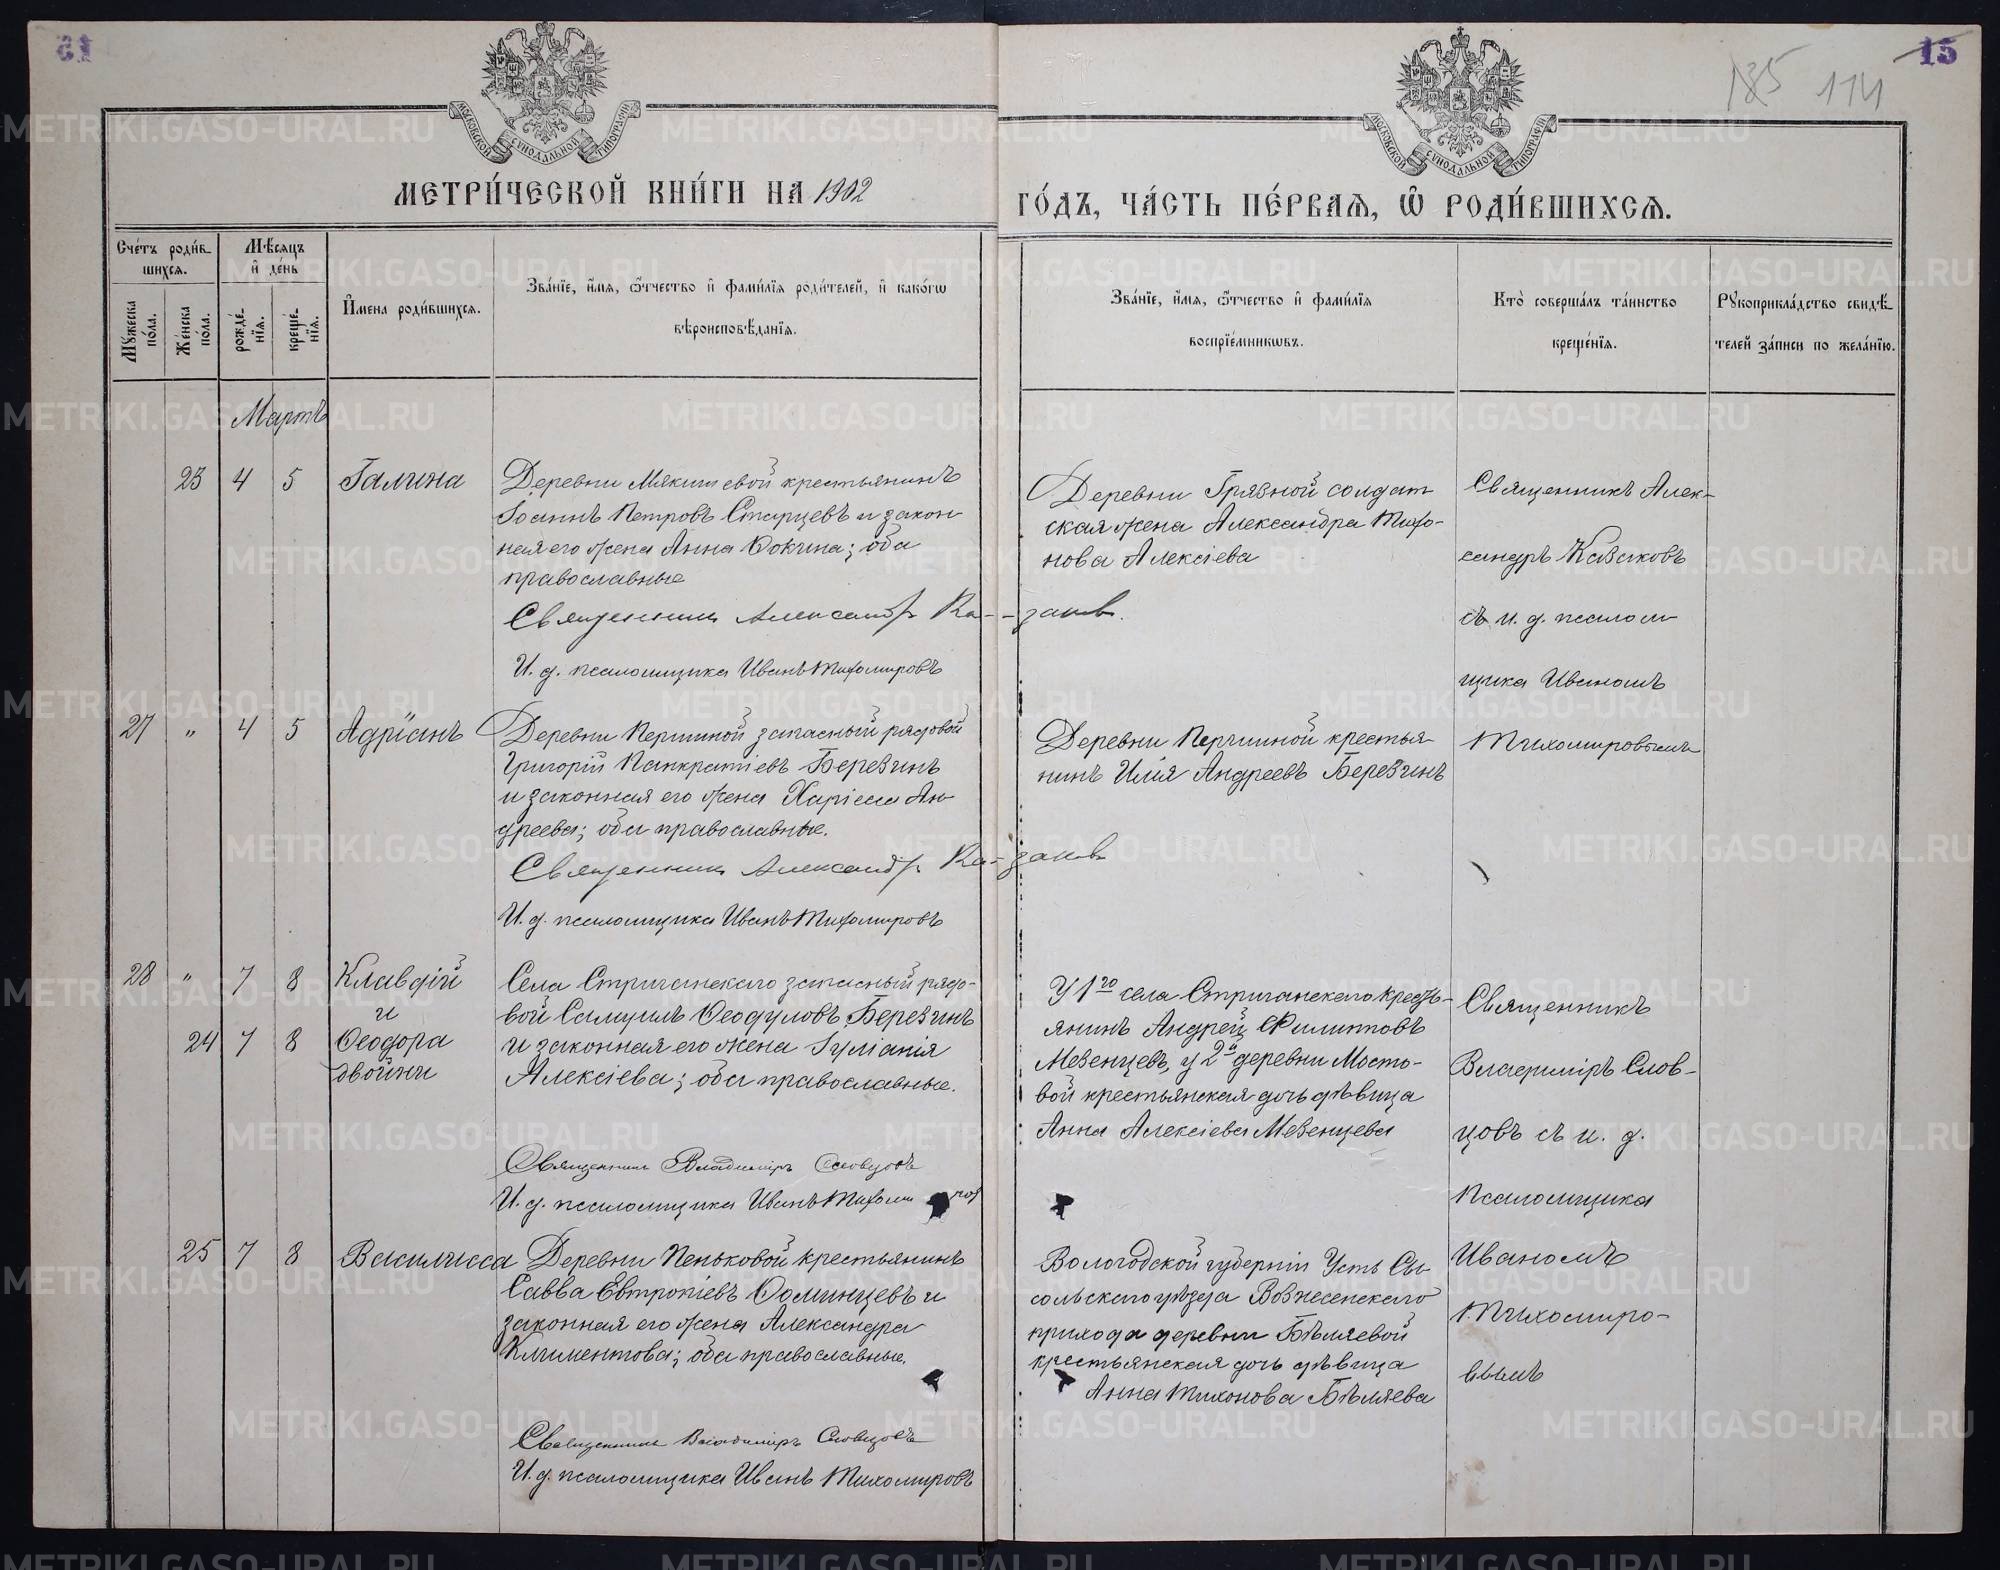 15
135 114
МОСКОВСКОЙ СУНОДАЛЬНОЙ ТИПОГРАФІИ
МОСКОВСКОЙ СУНОДАЛЬНОЙ ТИПОГРАФІИ
МЕТРИ́ЧЕСКОЙ КНИ́ГИ НА 1902
ГО́ДЪ, ЧА́СТЬ ПЕ́РВАѦ, Ѽ РОДИ́ВШИХСѦ.
Сче́тъ роди́в-
шихсѧ.
Мꙋжеска по́ла.
Же́нска по́ла.
Мѣ́сѧцъ
и҆ де́нь
рожде́-
нїѧ.
креще́-
нїѧ.
И҆мена роди́вшихсѧ.
Зва́нїе, и҆́мѧ, ѻ҆́тчество и҆ фами́лїѧ роди́телей, и҆ како́гѡ
вѣроисповѣ́данїѧ.
Зва́нїе, и҆́мѧ, ѻ҆́тчество и҆ фами́лїѧ
воспрїе́мникѡвъ.
Кто̀ соверша́лъ та́инство
креще́нїѧ.
Рꙋкоприкла́дство свидѣ́-
телей за́писи по жела́нїю.
Мартъ
23 4 5 Галина
Деревни Мякишевой крестьянинъ
Іоаннъ Петровъ Старцевъ и закон-
ная его жена Анна Фокина; оба
православные
Священник Александр Ка-заков.
И. д. псаломщика Иванъ Тихомировъ
Деревни Грязной солдат
ская жена Александра Тихо-
нова Алексіева
Священникъ Алек-
сандръ Казаковъ
съ и. д. псалом
щика Иваномъ
Тихомировымъ
27 „ 4 5 Адріанъ
Деревни Першиной запасный рядовой
Григорій Панкратіевъ Березинъ
и законная его жена Харіеса Ан-
дреева; оба православные.
Священник Александр Ка-заков
И. д. псаломщика Иванъ Тихомировъ
Деревни Першиной крестья-
нинъ Илія Андреевъ Березинъ
28 „ 7 8 Клавдій
и
24 7 8 Ѳеодора
двойни
Села Стриганскаго запасный рядо-
вой Самуилъ Ѳеодуловъ Березинъ
и законная его жена Іуліанія
Алексіева; оба православные.
Священник Владимір Словцовъ
И. д. псаломщика Иванъ Тихомиров
У 1го села Стриганскаго кресть-
янинъ Андрей Филипповъ
Мезенцевъ, у 2й деревни Мосто-
вой крестьянская дочь дѣвица
Анна Алексіева Мезенцева
Священникъ
Владиміръ Слов-
цовъ съ и. д.
псаломщика
Иваномъ
Тихомиро-
вымъ
25 7 8 Василисса
Деревни Пеньковой крестьянинъ
Савва Евтропіевъ Фоминцевъ и
законная его жена Александра
Климентова; оба православные.
Священник Владимір Словцовъ
И. д. псаломщика Иванъ Тихомировъ
Вологодской губерніи Усть Сы-
сольскаго уѣзда Вознесенскаго
прихода деревни Бѣляевой
крестьянская дочь дѣвица
Анна Тихонова Бѣляева
METRIKI.GASO-URAL.RU